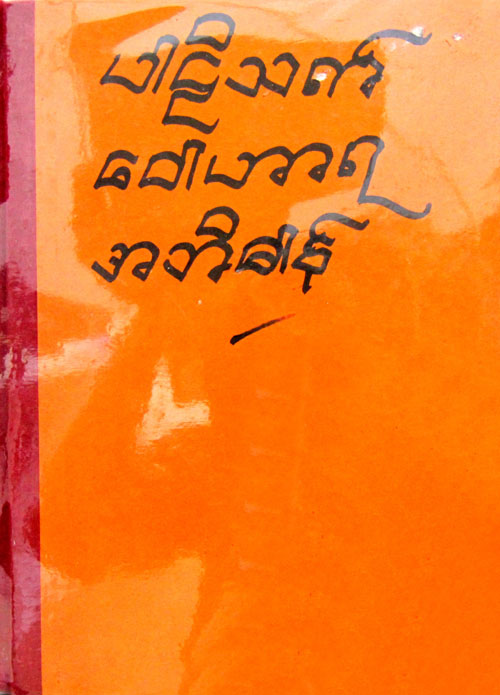 ပါဠိသက်
ဝေါဟာရ
အဘိဓါန်